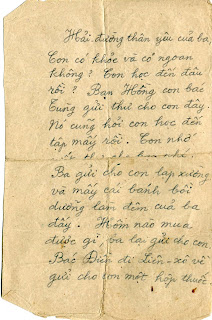 Hải đường thân yêu của ba
Con có khỏe và có ngoan
không? Con học đến đâu
rồi? Bạn Hồng con bác
Tung gửi thư cho con đấy.
Nó cũng hỏi con học đến
tập mấy rồi. Con nhớ
Ba gửi cho con lạp xưởng
và mấy cái bánh bồi
dưỡng ban đêm của ba
đấy. Hôm nào mua
được gì ba lại gửi cho con
Bác Điện đi Liên-xô về
gửi cho con một hộp thuốc